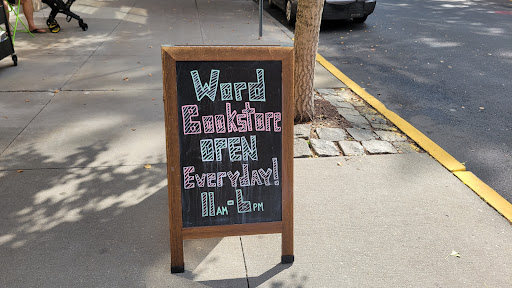 Word
Bookstore
OPEN
Everyday!
11AM-6PM